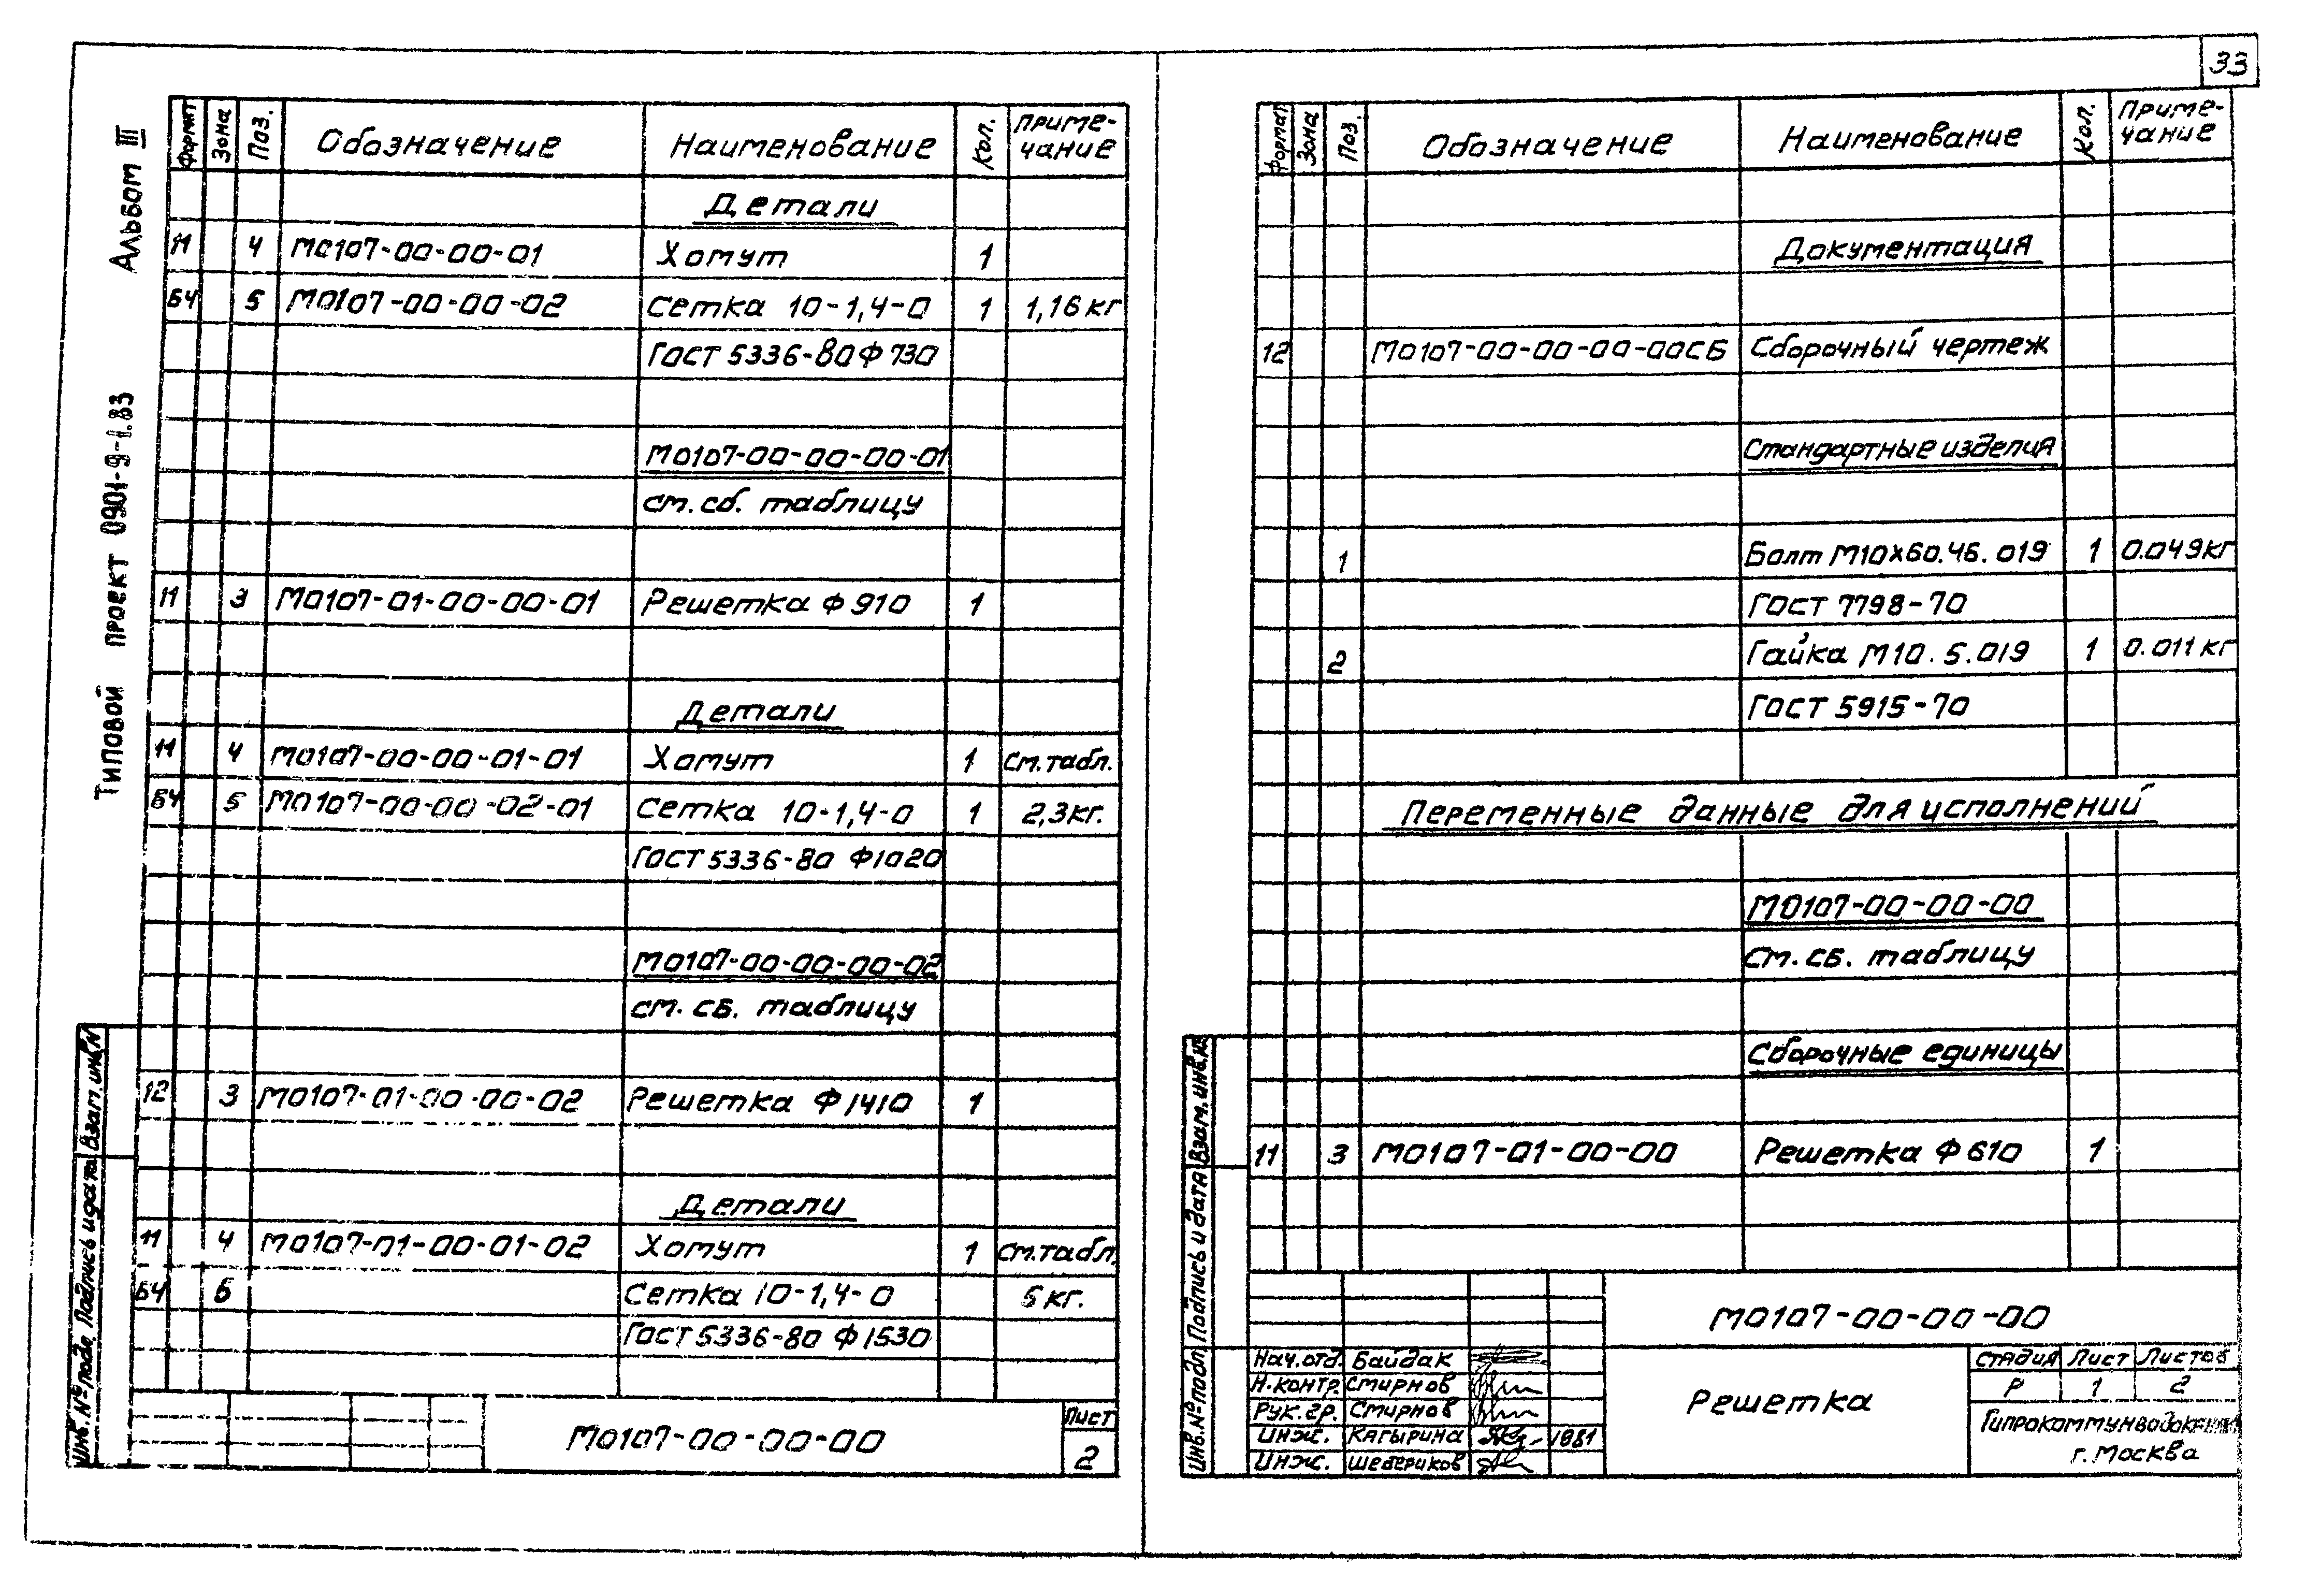 33
Альбом III
Типовой проект 0901-9-1.83
Формат Зона Поз. Обозначение Наименование Кол. Приме-
чание
Детали
11 4 М0107-00-00-01 Хомут 1
БЧ 5 М0107-00-00-02 Сетка 10-1,4-0 1 1,16 кг
ГОСТ 5336-80 Ф 730
М0107-00-00-00-01
см. сб. таблицу
11 3 М0107-01-00-00-01 Решетка Ф 910 1
Детали
11 4 М0107-00-00-01-01 Хомут 1 См. табл.
БЧ 5 М0107-00-00-02-01 Сетка 10-1,4-0 1 2,3 кг.
ГОСТ 5336-80 Ф1020
М0107-00-00-00-02
см. СБ. таблицу
12 3 М0107-01-00-00-02 Решетка Ф 1410 1
Детали
11 4 М0107-01-00-01-02 Хомут 1 См. табл.
БЧ 5 Сетка 10-1,4-0 5 кг.
ГОСТ 5336-80 Ф 1530
М0107-00-00-00
Лист
2
Инв. № подл. Подпись и дата Взам. инв. №
Формат Зона Поз. Обозначение Наименование Кол. Приме-
чание
Документация
12 М0107-00-00-00-00СБ Сборочный чертеж
Стандартные изделия
1 Болт М10х60.46.019 1 0.049 кг
ГОСТ 7798-70
2 Гайка М10.5.019 1 0.011 кг
ГОСТ 5915-70
Переменные данные для исполнений
М0107-00-00-00
см. СБ. таблицу
Сборочные единицы
11 3 М0107-01-00-00 Решетка Ф 610 1
Инв. № подл. Подпись и дата Взам. инв. №
М0107-00-00-00
Нач. отд. Байдак
Н. контр. Смирнов
Рук. гр. Смирнов
Инж. Кагырина 1981
Инж. Шевериков
Решетка
Стадия Лист Листов
Р 1 2
Гипрокоммунводоканал
г. Москва